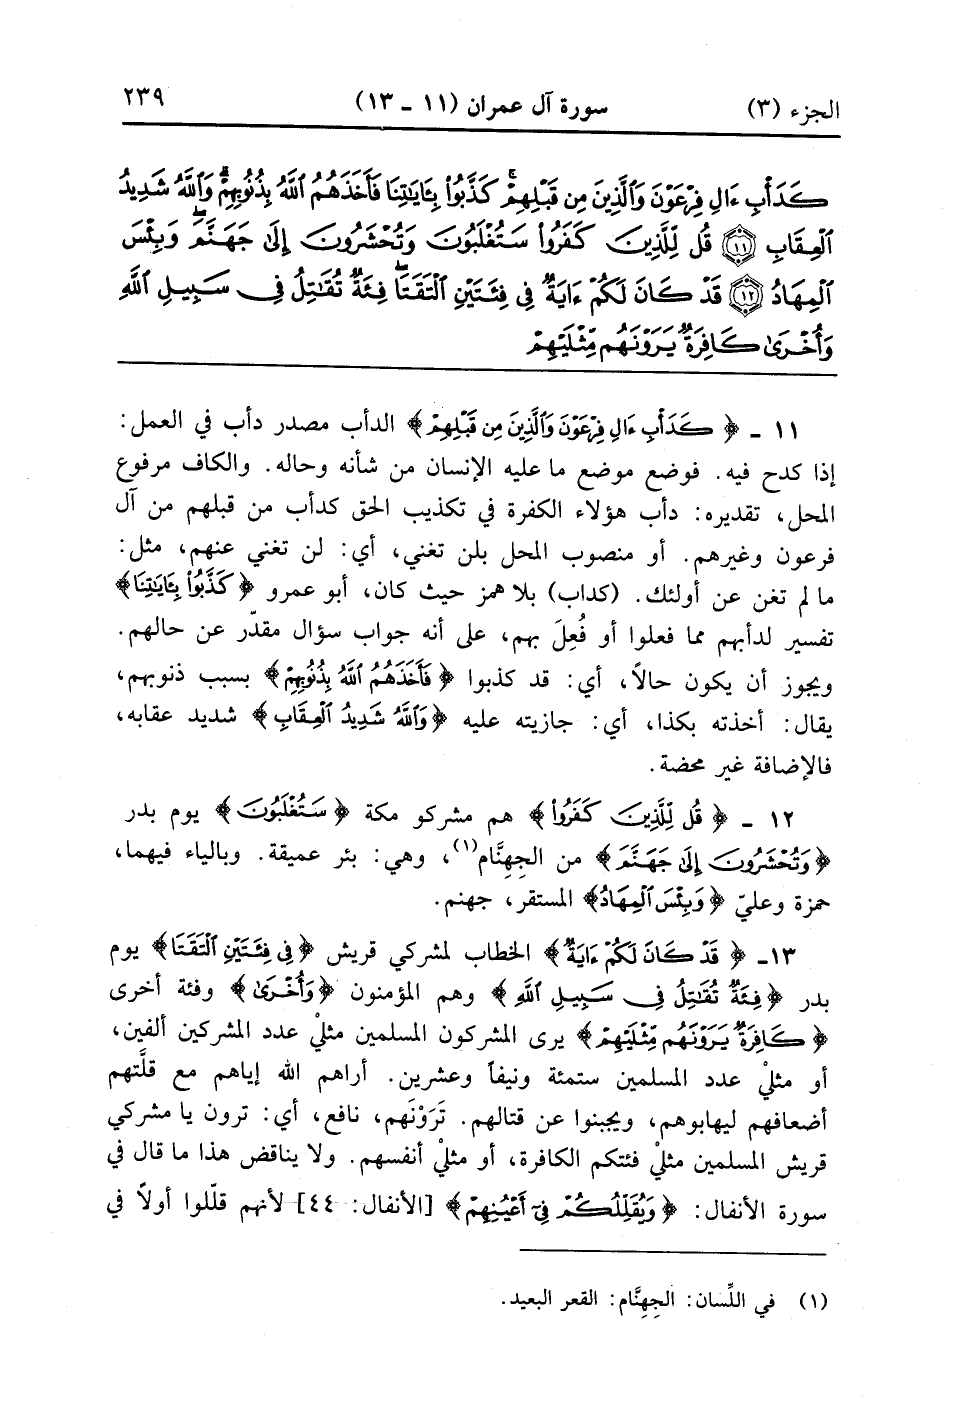 الجزء (٣) سورة آل عمران (١١ - ١٣) ٢٣٩
كَدَأْبِ ءَالِ فِرْعَوْنَ وَٱلَّذِينَ مِن قَبْلِهِمْ ۚ كَذَّبُوا۟ بِـَٔايَـٰتِنَا فَأَخَذَهُمُ ٱللَّهُ بِذُنُوبِهِمْ ۗ وَٱللَّهُ شَدِيدُ
ٱلْعِقَابِ ﴿١١﴾ قُل لِّلَّذِينَ كَفَرُوا۟ سَتُغْلَبُونَ وَتُحْشَرُونَ إِلَىٰ جَهَنَّمَ ۚ وَبِئْسَ
ٱلْمِهَادُ ﴿١٢﴾ قَدْ كَانَ لَكُمْ ءَايَةٌ فِى فِئَتَيْنِ ٱلْتَقَتَا ۖ فِئَةٌ تُقَـٰتِلُ فِى سَبِيلِ ٱللَّهِ
وَأُخْرَىٰ كَافِرَةٌ يَرَوْنَهُم مِّثْلَيْهِمْ
١١ - ﴿كَدَأْبِ ءَالِ فِرْعَوْنَ وَٱلَّذِينَ مِن قَبْلِهِمْ﴾ الدأب مصدر دأب في العمل:
إذا كدح فيه. فوضع موضع ما عليه الإنسان من شأنه وحاله. والكاف مرفوع
المحل، تقديره: دأب هؤلاء الكفرة في تكذيب الحق كدأب من قبلهم من آل
فرعون وغيرهم. أو منصوب المحل بلن تغني، أي: لن تغني عنهم، مثل:
ما لم تغن عن أولئك. (كداب) بلا همز حيث كان، أبو عمرو ﴿كَذَّبُوا۟ بِـَٔايَـٰتِنَا﴾
تفسير لدأبهم مما فعلوا أو فُعِلَ بهم، على أنه جواب سؤال مقدّر عن حالهم.
ويجوز أن يكون حالاً، أي: قد كذبوا ﴿فَأَخَذَهُمُ ٱللَّهُ بِذُنُوبِهِمْ﴾ بسبب ذنوبهم،
يقال: أخذته بكذا، أي: جازيته عليه ﴿وَٱللَّهُ شَدِيدُ ٱلْعِقَابِ﴾ شديد عقابه،
فالإضافة غير محضة.
١٢ - ﴿قُل لِّلَّذِينَ كَفَرُوا۟﴾ هم مشركو مكة ﴿سَتُغْلَبُونَ﴾ يوم بدر
﴿وَتُحْشَرُونَ إِلَىٰ جَهَنَّمَ﴾ من الجِهِنَّام(١)، وهي: بئر عميقة. وبالياء فيهما،
حمزة وعليّ ﴿وَبِئْسَ ٱلْمِهَادُ﴾ المستقر، جهنم.
١٣- ﴿قَدْ كَانَ لَكُمْ ءَايَةٌ﴾ الخطاب لمشركي قريش ﴿فِى فِئَتَيْنِ ٱلْتَقَتَا﴾ يوم
بدر ﴿فِئَةٌ تُقَـٰتِلُ فِى سَبِيلِ ٱللَّهِ﴾ وهم المؤمنون ﴿وَأُخْرَىٰ﴾ وفئة أخرى
﴿كَافِرَةٌ يَرَوْنَهُم مِّثْلَيْهِمْ﴾ يرى المشركون المسلمين مثليْ عدد المشركين ألفين،
أو مثليْ عدد المسلمين ستمئة ونيفاً وعشرين. أراهم الله إياهم مع قلَّتهم
أضعافهم ليهابوهم، ويجبنوا عن قتالهم. تَرَوْنَهم، نافع، أي: ترون يا مشركي
قريش المسلمين مثليْ فئتكم الكافرة، أو مثليْ أنفسهم. ولا يناقض هذا ما قال في
سورة الأنفال: ﴿وَيُقَلِّلُكُمْ فِىٓ أَعْيُنِهِمْ﴾ [الأنفال: ٤٤] لأنهم قلّلوا أولاً في
(١) في اللِّسان: الجِهِنَّام: القعر البعيد.